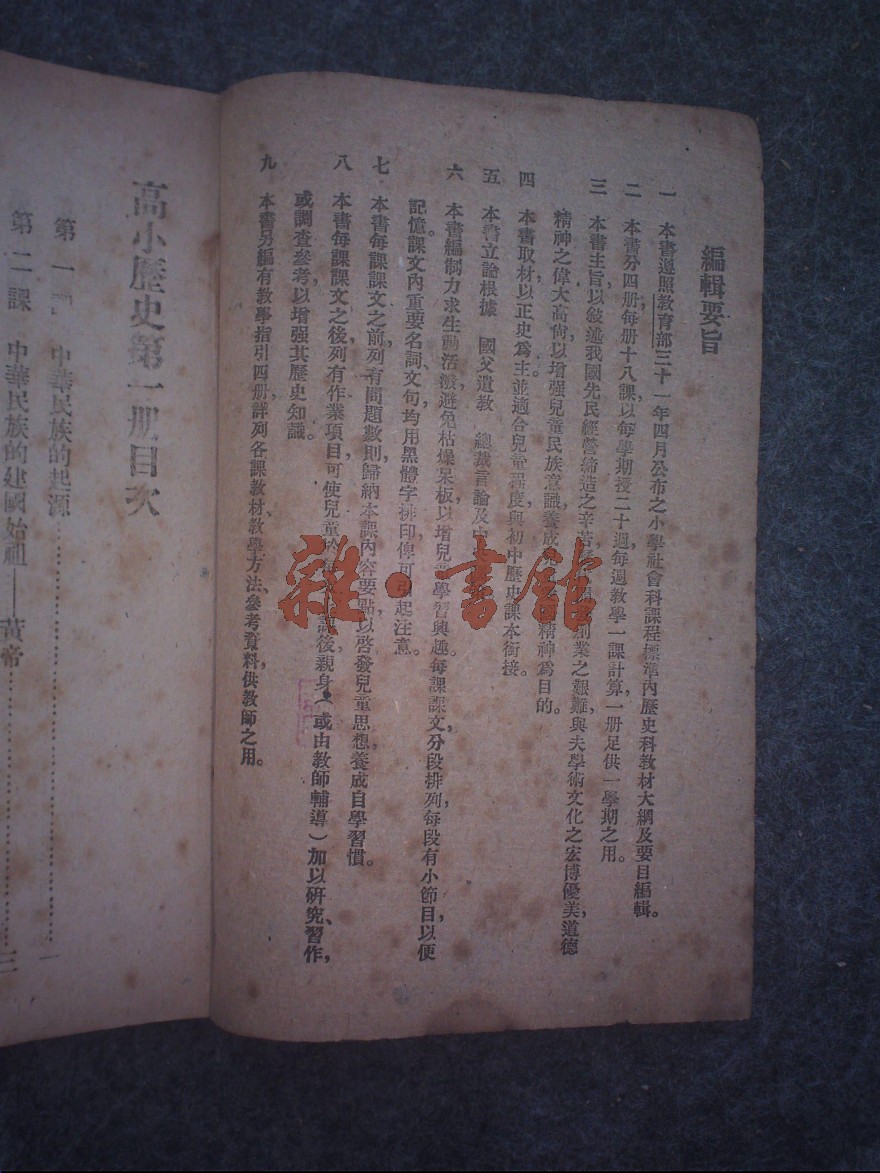 編輯要旨
一 本書遵照教育部三十一年四月公布之小學社會科課程標準內歷史科教材大綱及要目編輯。
二 本書分四册,每册十八課,以每學期授二十週,每週教學一課計算,一册足供一學期之用。
三 本書主旨,以敍述我國先民經營締造之辛苦,創業之艱難,與夫學術文化之宏博優美,道德
精神之偉大高尙,以增强兒童民族意識,養成精神爲目的。
四 本書取材以正史爲主,並適合兒童程度,與初中歷史課本銜接。
五 本書立論根據 國父遺教 總裁言論及中
六 本書編制,力求生動活潑,避免枯燥呆板,以增兒童學習興趣。每課課文,分段排列,每段有小節目,以便
記憶。課文內重要名詞、文句,均用黑體字排印,俾可引起注意。
七 本書每課課文之前,列有問題數則,歸納本課內容要點,以啓發兒童思想,養成自學習慣。
八 本書每課課文之後,列有作業項目,可使兒童於課後親身(或由教師輔導)加以硏究、習作,
或調查參考,以增强其歷史知識。
九 本書另編有教學指引四册,詳列各課教材、教學方法、參考資料,供教師之用。
高小歷史第一册目次
第一 中華民族的起源……一
第二課 中華民族的建國始祖——黃帝……三
雜·書館